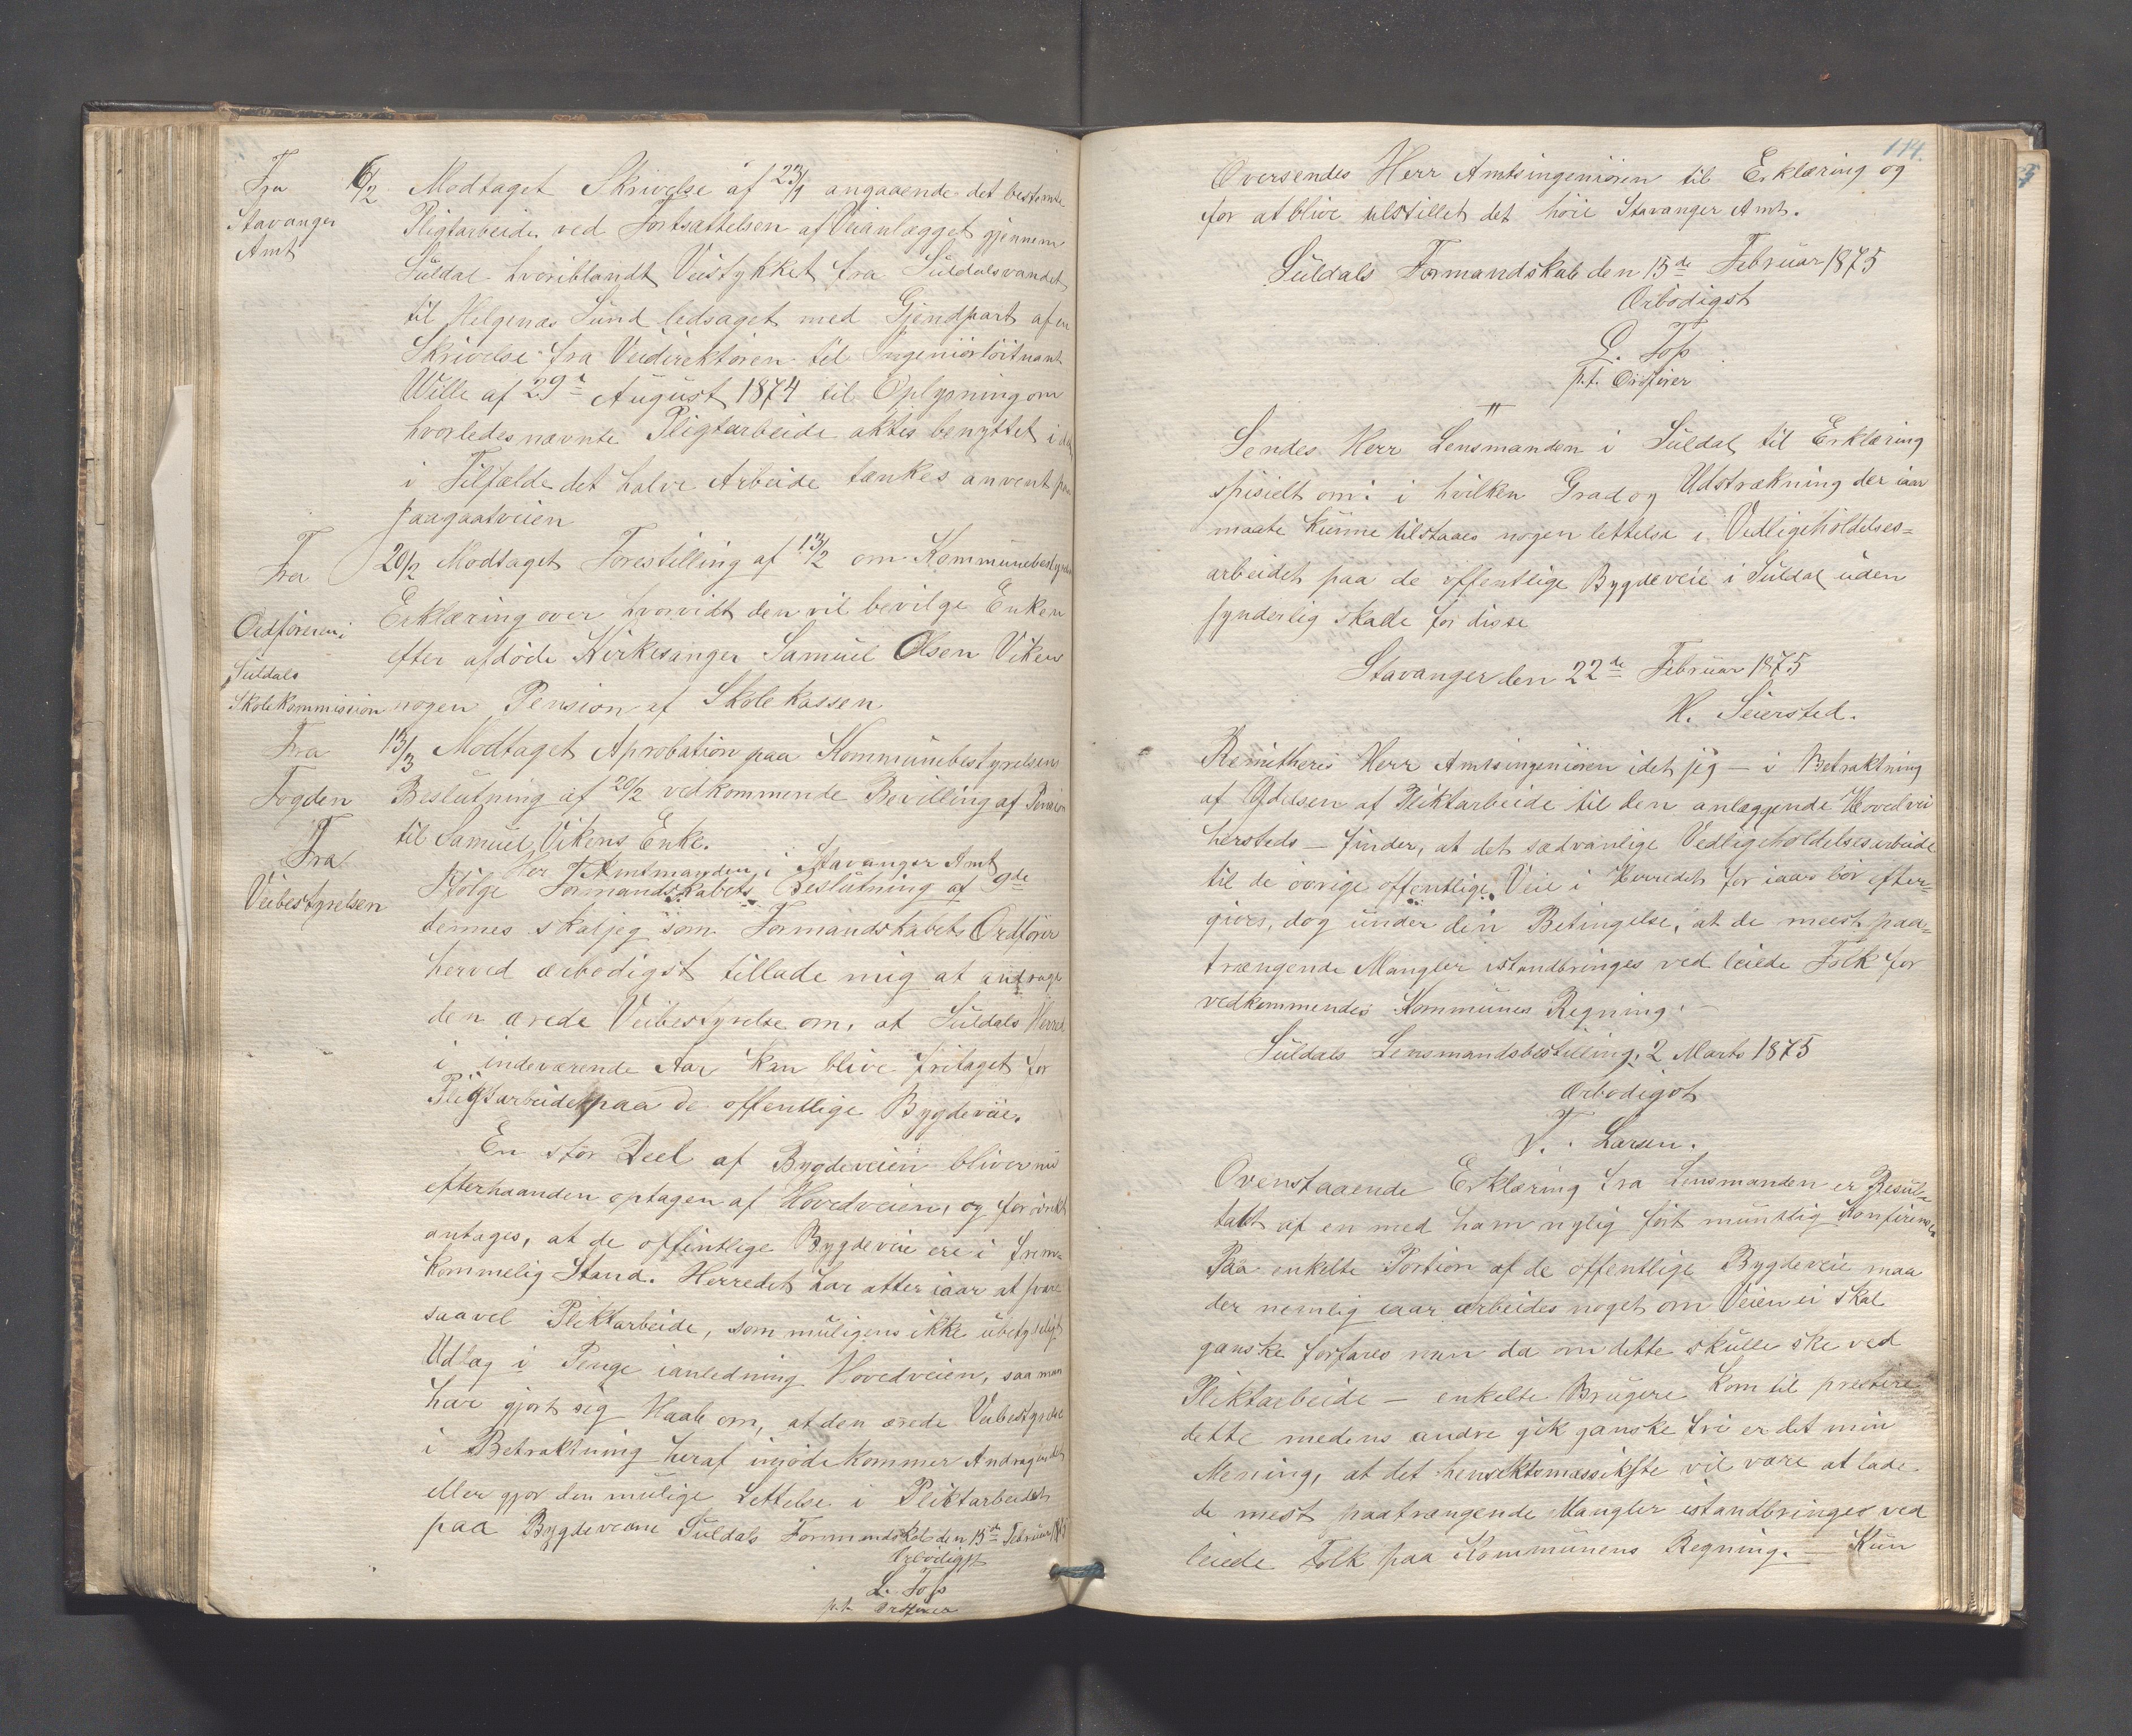 Fra Stavanger Amt
6/2 Modtaget Skrivelse af 23/1 angaaende det bestemte
Pligtarbeide ved Fortsættelsen af Veianlægget gjennem
Suldal hvoriblandt Veistykket fra Suldalsvandet
til Helgenæs Sund ledsaget med Gjendpart af en
Skrivelse fra Veidirektøren til Ingeniørløitnant
Wille af 29de August 1874 til Oplysning om
hvorledes nævnte Pligtarbeide aktes benyttet
i Tilfælde det halve Arbeide tænkes anvent paa
paagaatveien
Fra Ordføreren i Suldals Skolekommission
20/2 Modtaget Forestilling af 13/2 om Kommunebestyrelsens
Erklæring over hvorvidt den vil bevilge Enken
efter afdøde Kirkesanger Samuel Olsen Viken
nogen Pension af Skolekassen
Fra Fogden
13/3 Modtaget Aprobation paa Kommunebestyrelsens
Beslutning af 20/2 vedkommende Bevilling af Pension
til Samuel Vikens Enke.
Fra Veibestyrelsen
Her Amtmanden i Stavanger Amt
Ifølge Formandskabets Beslutning af 9de
dennes skal jeg som Formandskabets Ordfører
herved ærbødigst tillade mig at andrage
den ærede Veibestyrelse om, at Suldals Herred
i indeværende Aar kan blive fritaget for
Pligtarbeide paa de offentlige Bygdeveie.
En stor Deel af Bygdeveien bliver nu
efterhaanden optagen af Hovedveien, og forøvrigt
antages, at de offentlige Bygdeveie ere i frem-
kommelig Stand. Herredet har atter iaar at svare
saavel Pliktarbeide, som muligens ikke ubetydeligt
Udlæg i Penge ianledning Hovedveien, saa man
har gjort sig Haab om, at den ærede Veibestyrelse
i Betraktning heraf imødekommer Andragendet
eller gjør den mulige Lettelse i Pliktarbeidet
paa Bygdeveiene Suldals Formandskab den 15de Februar 1875
Ærbødigst
L. Foss
p.t. Ordfører
114.
Oversendes Herr Amtsingeniøren til Erklæring og
for at blive tilstillet det høie Stavanger Amt.
Suldals Formandskab den 15de Februar 1875
Ærbødigst
L. Foss
p.t. Ordfører
"
Sendes Herr Lensmanden i Suldal til Erklæring
spisielt om: i hvilken Grad og Udstrækning der iaar
maate kunne tilstaaes nogen lettelse i Vedligeholdelses-
arbeidet paa de offentlige Bygdeveie i Suldal uden
synderlig skade for disse
Stavanger den 22de Februar 1875
H. Seiersted.
Remitheres Herr Amtsingeniøren idet jeg — i Betraktning
af Ydelsen af Pliktarbeide til den anlæggende Hovedvei
hersteds — finder, at det sædvanlige Vedligeholdelsesarbeide
til de øvrige offentlige Veie i Herredet for iaar bør efter-
gives, dog under den Betingelse, at de meest paa-
trængende Mangler istandbringes ved leiede Folk for
vedkommendes Kommunes Regning.
Suldals Lensmandsbestilling, 2 Marts 1875
Ærbødigst
T. Larsen.
Ovenstaaende Erklæring fra Lensmanden er Resul-
tatt af en med ham nylig ført mundtlig Konferense
Paa enkelte Portion af de offentlige Bygdeveie maa
der nemlig iaar arbeides noget om Veien ei skal
ganske forfares men da om dette skulle ske ved
Pliktarbeide — enkelte Brugere kom til prestere
dette medens andre gik ganske fri er det min
Mening, at det hensiktsmæssikste vil være at lade
de mest paatrængende Mangler istandbringes ved
leiede Folk paa Kommunens Regning. — Kun